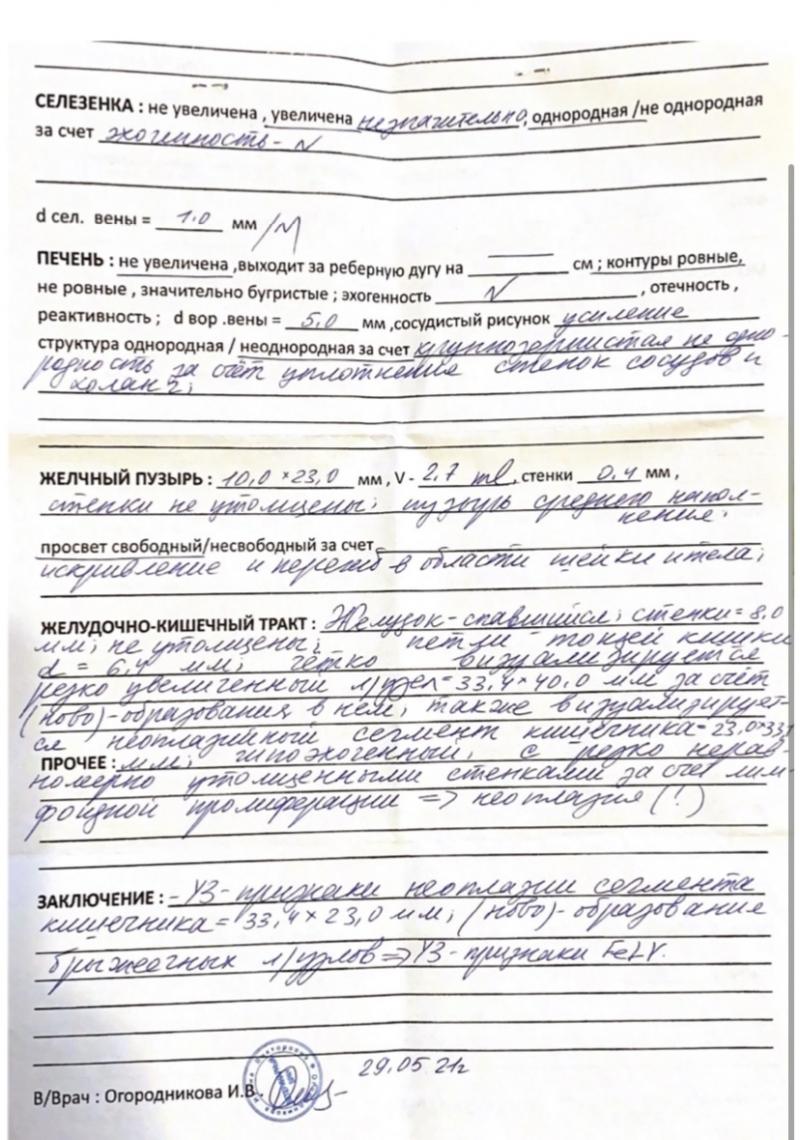 СЕЛЕЗЕНКА : не увеличена , увеличена незначительно, однородная /не однородная
за счет эхогенность - N
d сел. вены = 1.0 мм /N
ПЕЧЕНЬ : не увеличена ,выходит за реберную дугу на см ; контуры ровные,
не ровные , значительно бугристые ; эхогенность N , отечность ,
реактивность ; d вор .вены = 5,0 мм ,сосудистый рисунок усиление
структура однородная / неоднородная за счет крупнозернистая не одно-
родность за счёт уплотнения стенок сосудов и
желчный ПУЗЫРЬ : 10,0 × 23,0 мм , V - 2,7 ml , стенки 0,4 мм ,
стенки не утолщены; пузырь среднего напол-
нения.
просвет свободный/несвободный за счет
искривление и перегиб в области шейки и тела;
ЖЕЛУДОЧНО-КИШЕЧНЫЙ ТРАКТ : Желудок - спавшийся; стенки = 8,0
мм; не утолщены; петли тонкой кишки
d = 6,4 мм; чётко визуализируется
резко увеличенный л/узел = 33,4 × 40,0 мм за счёт
(ново)-образования в нём; также визуализирует-
ся неоплазийный сегмент кишечника = 23,0 × 33,1
ПРОЧЕЕ : мм; гипоэхогенный, с резко нерав-
номерно утолщенными стенками за счёт лим-
фоидной пролиферации => неоплазия (!)
ЗАКЛЮЧЕНИЕ : - УЗ - признаки неоплазии сегмента
кишечника = 33,4 × 23,0 мм; (ново)-образование
брыжеечных л/узлов => УЗ - признаки FeLV.
29.05.21г
В/Врач : Огородникова И.В.